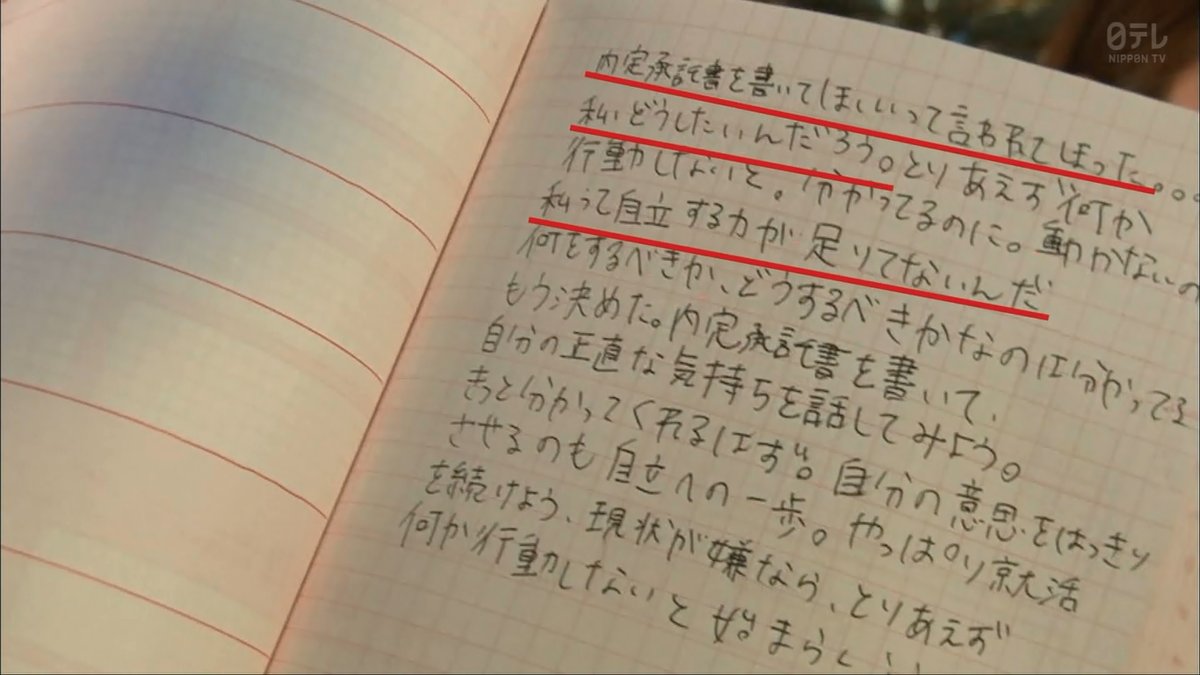 日テレ
NIPPON TV
内定承諾書を書いてほしいって言われてしまった。。。
私、どうしたいんだろう。とりあえず何か
行動しないと。分かってるのに。動かないの
私って自立する力が足りてないんだ
何をするべきか、どうするべきかなのは分かってる
もう決めた。内定承諾書を書いて、
自分の正直な気持ちを話してみよう。
きっと分かってくれるはず。自分の意思をはっきり
させるのも自立への一歩。やっぱり就活
を続けよう、現状が嫌なら、とりあえず
何か行動しないと始まら